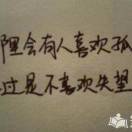 哪里会有人喜欢孤
过是不喜欢失望